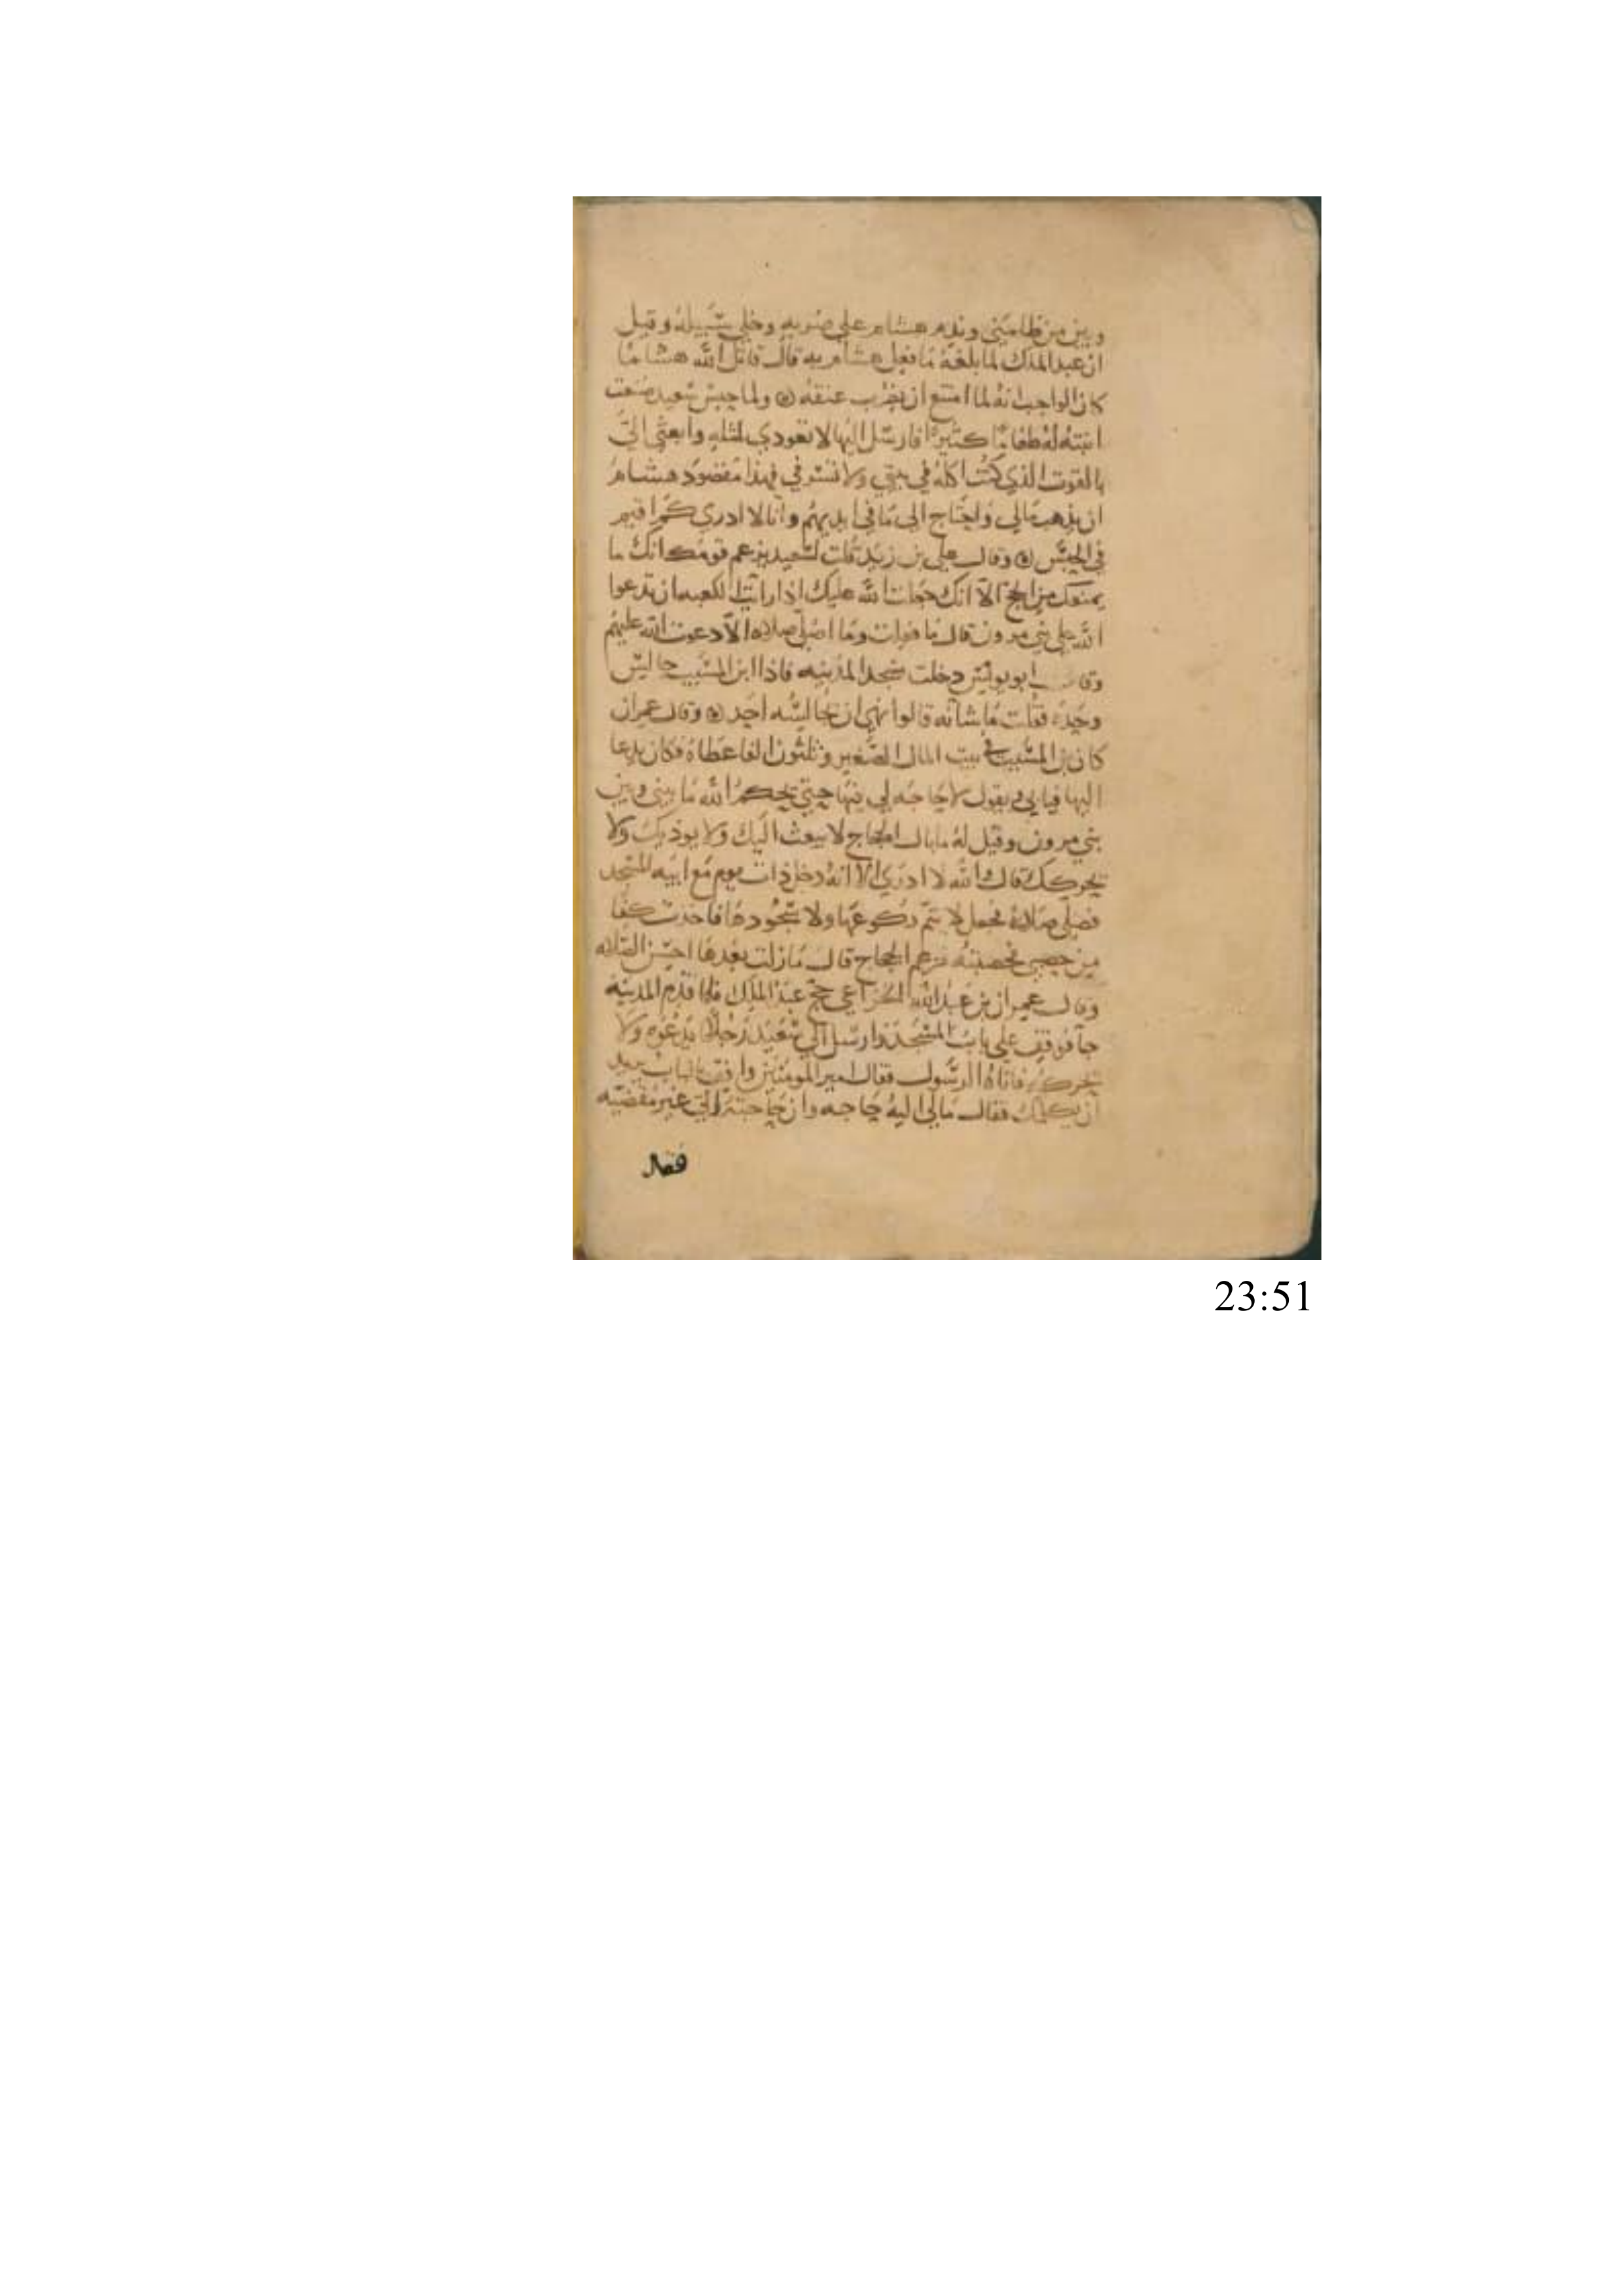 وبين من ظلمني وندم هشام علي ضربه وخلي سبيله وقيل
ان عبد الملك لما بلغه ما فعل هشام به قال قاتل الله هشاما
كان الواجب انه لما امتنع ان يضرب عنقه ولما حبس سعيد صنعت
ابنته له طعاما كثيرا فارسل اليها لا تعودي لمثله وابعثي الي
بالقوت الذي كنت اكله في بيتي ولا تسرفي فهذا مقصود هشام
ان يذهب مالي واحتاج الي ما في ايديهم وانا لا ادري كم اقيم
في الحبس وقال علي بن زيد قلت لسعيد يزعم قومك انك ما
يمنعك من الحج الا انك جعلت لله عليك اذا رايت الكعبه ان تدعوا
الله علي بني مرون قال ما فعلت وما اصلي صلاه الا دعوت الله عليهم
وقال ابو يونس دخلت مسجد المدينه فاذا ابن المسيب جالس
وحده فقلت ما شانه قالوا نهي ان يجالسه احد وقال عمران
كان لابن المسيب في بيت المال الصغير وثلثون الفا عطاه فكان يدعا
اليها فيابي ويقول لا حاجه لي فيها حتي يحكم الله ما بيني وبين
بني مرون وقيل له ما بال الحجاج لا يبعث اليك ولا يوذيك ولا
يحركك قال والله لا ادري الا انه دخل ذات يوم مع ابيه المسجد
فصلي صلاه فجعل لا يتم ركوعها ولا سجودها فاخذت كفا
من حصي فحصبته فزعم الحجاج قال ما زلت بعدها احسن الصلاه
وقال عمران بن عبد الله الخزاعي حج عبد الملك فلما قدم المدينه
جا فوقف علي باب المسجد وارسل الي سعيد رجلا يدعوه ولا
يحركه فاتاه الرسول فقال امير المومنين واقف بالباب يريد
ان يكلمك فقال مالي اليه حاجه وان حاجته الي غير مقضيه
فقال
23:51